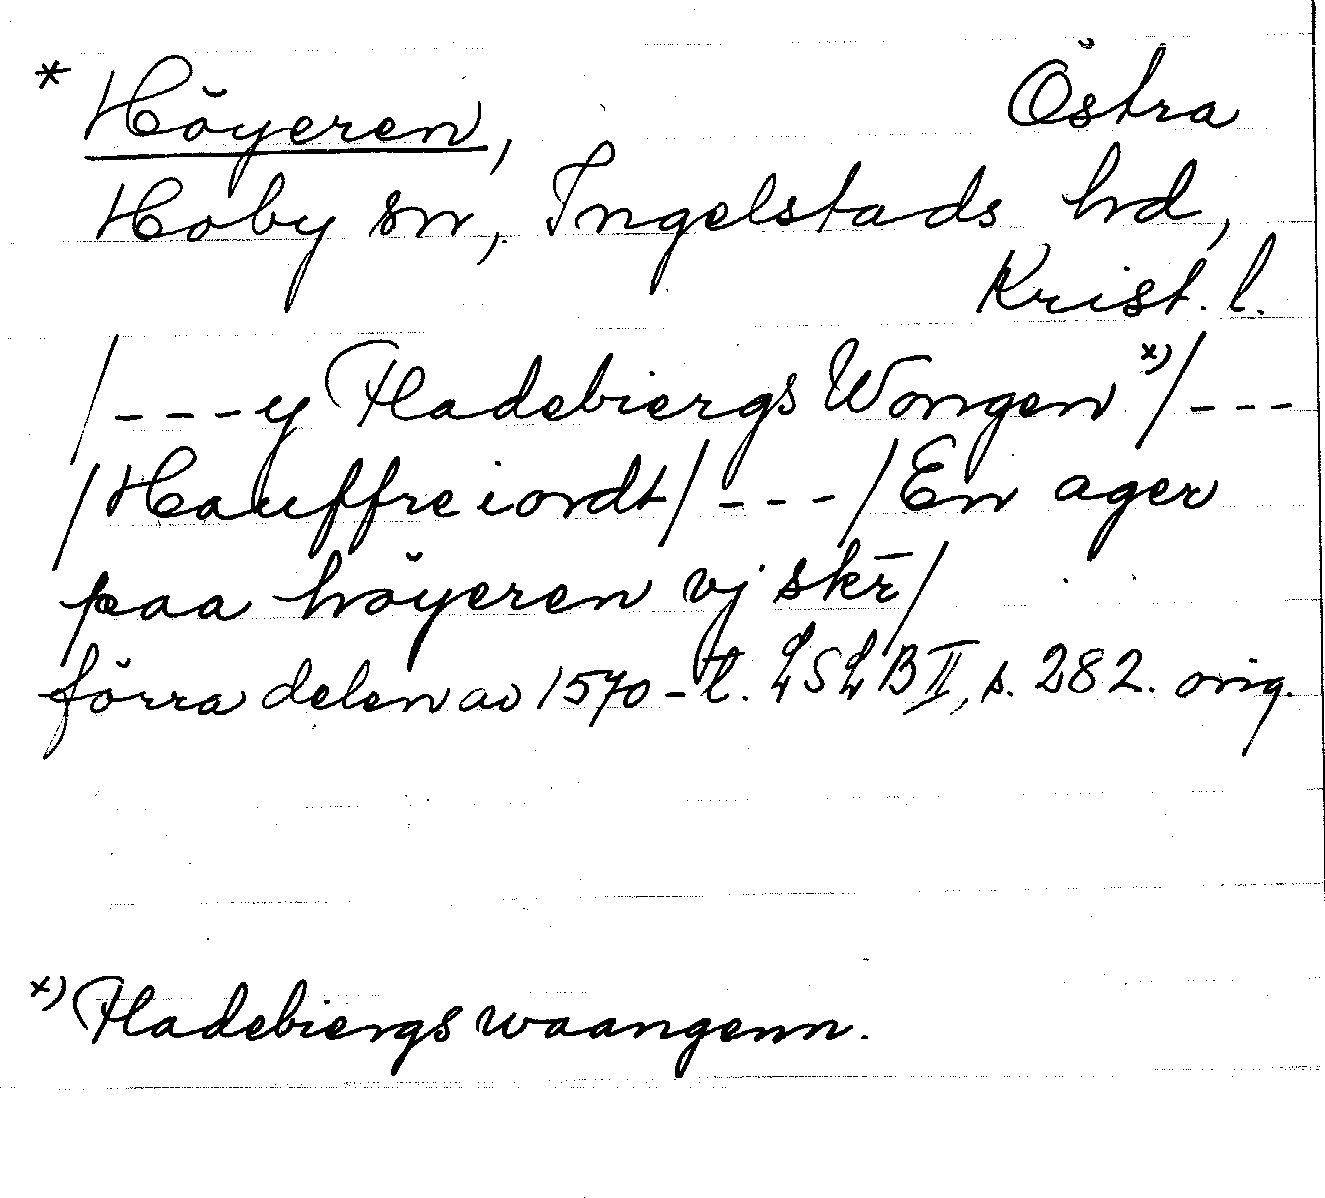 * Höyeren, Östra
Hoby sn, Ingelstads hd,
Krist. l.
/---y Fladebiergs Wongen x)/---
/Hauffreiordt/---/En ager
paa höyeren vj skr̄/
förra delen av 1570-t. LSLB II, s. 282. orig.
x) Fladebiergs waangenn.